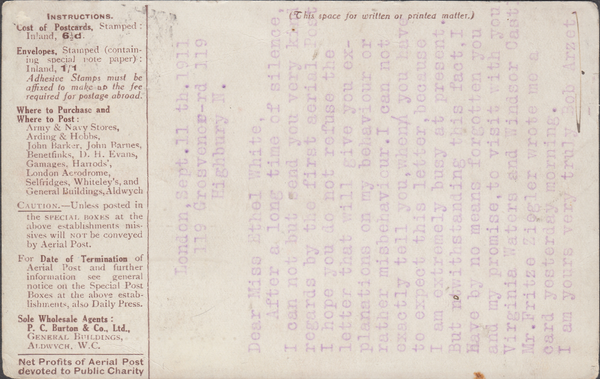 INSTRUCTIONS.
Cost of Postcards, Stamped:
Inland, 6½d.
Envelopes, Stamped (contain-
ing special note paper):
Inland, 1/1
Adhesive Stamps must be
affixed to make up the fee
required for postage abroad.
Where to Purchase and
Where to Post:
Army & Navy Stores,
Arding & Hobbs,
John Barker, John Barnes,
Benetfinks, D. H. Evans,
Gamages, Harrods',
London Aerodrome,
Selfridges, Whiteley's, and
General Buildings, Aldwych
CAUTION.—Unless posted in
the SPECIAL BOXES at the
above establishments mis-
sives will NOT be conveyed
by Aerial Post.
For Date of Termination of
Aerial Post and further
information see general
notice on the Special Post
Boxes at the above estab-
lishments, also Daily Press.
Sole Wholesale Agents:
P. C. Burton & Co., Ltd.,
GENERAL BUILDINGS,
ALDWYCH, W.C.
Net Profits of Aerial Post
devoted to Public Charity
(This space for written or printed matter.)
London, Sept. 11 th. 1911
119 Grosvenor-rd 119
Highbury N.
Dear Miss Ethel White,
After a long time of silence,
I can not but send you very kind
regards by the first aerial Post
I hope you do not refuse the
letter that will give you ex-
planations on my behaviour or
rather misbehaviour. I can not
exactly tell you, when you have
to expect this letter, because
I am extremely busy at present.
But notwithstanding this fact, I
Have by no means forgotten you
and my promise, to visit ith you
Virginia Waters and Windsor Cast
Mr. Fritze Ziegler wrote me a
card yesterday morning.
I am yours very truly Bob Arzet.